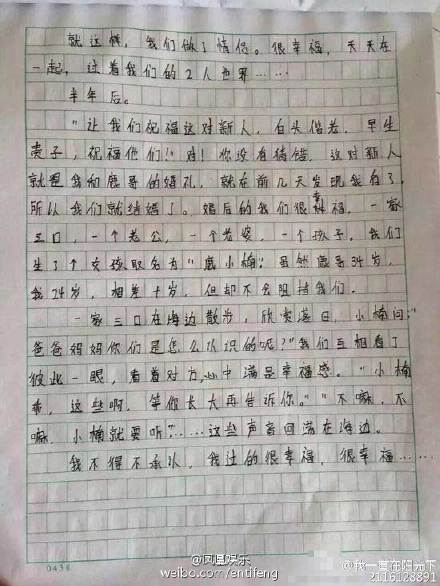 就这样，我们做了情侣。很幸福，天天在
一起，过着我们的2人世界……
半年后。
"让我们祝福这对新人，白头偕老，早生
贵子，祝福他们！"对！你没有猜错，这对新人
就是我和鹿哥的婚礼，就在前几天发现我有了，
所以我们就结婚了。婚后的我们很幸福，一家
三口，一个老公，一个老婆，一个孩子，我们
生了个女孩取名为"鹿小楠"虽然鹿哥34岁，
我24岁，相差十岁，但却不会阻挡我们。
一家三口在海边散步，欣赏落日，小楠问："
爸爸妈妈你们是怎么认识的呢？"我们互相看了
彼此一眼，看着对方，心中满是幸福感。"小楠
乖，这些啊，等你长大再告诉你。""不嘛，不
嘛，小楠就要听？"……这些声音回荡在海边。
我不得不承认，我过的很幸福，很幸福……
0436
@凤凰娱乐
weibo.com/entifeng
@我一直在阳光下
2116128891